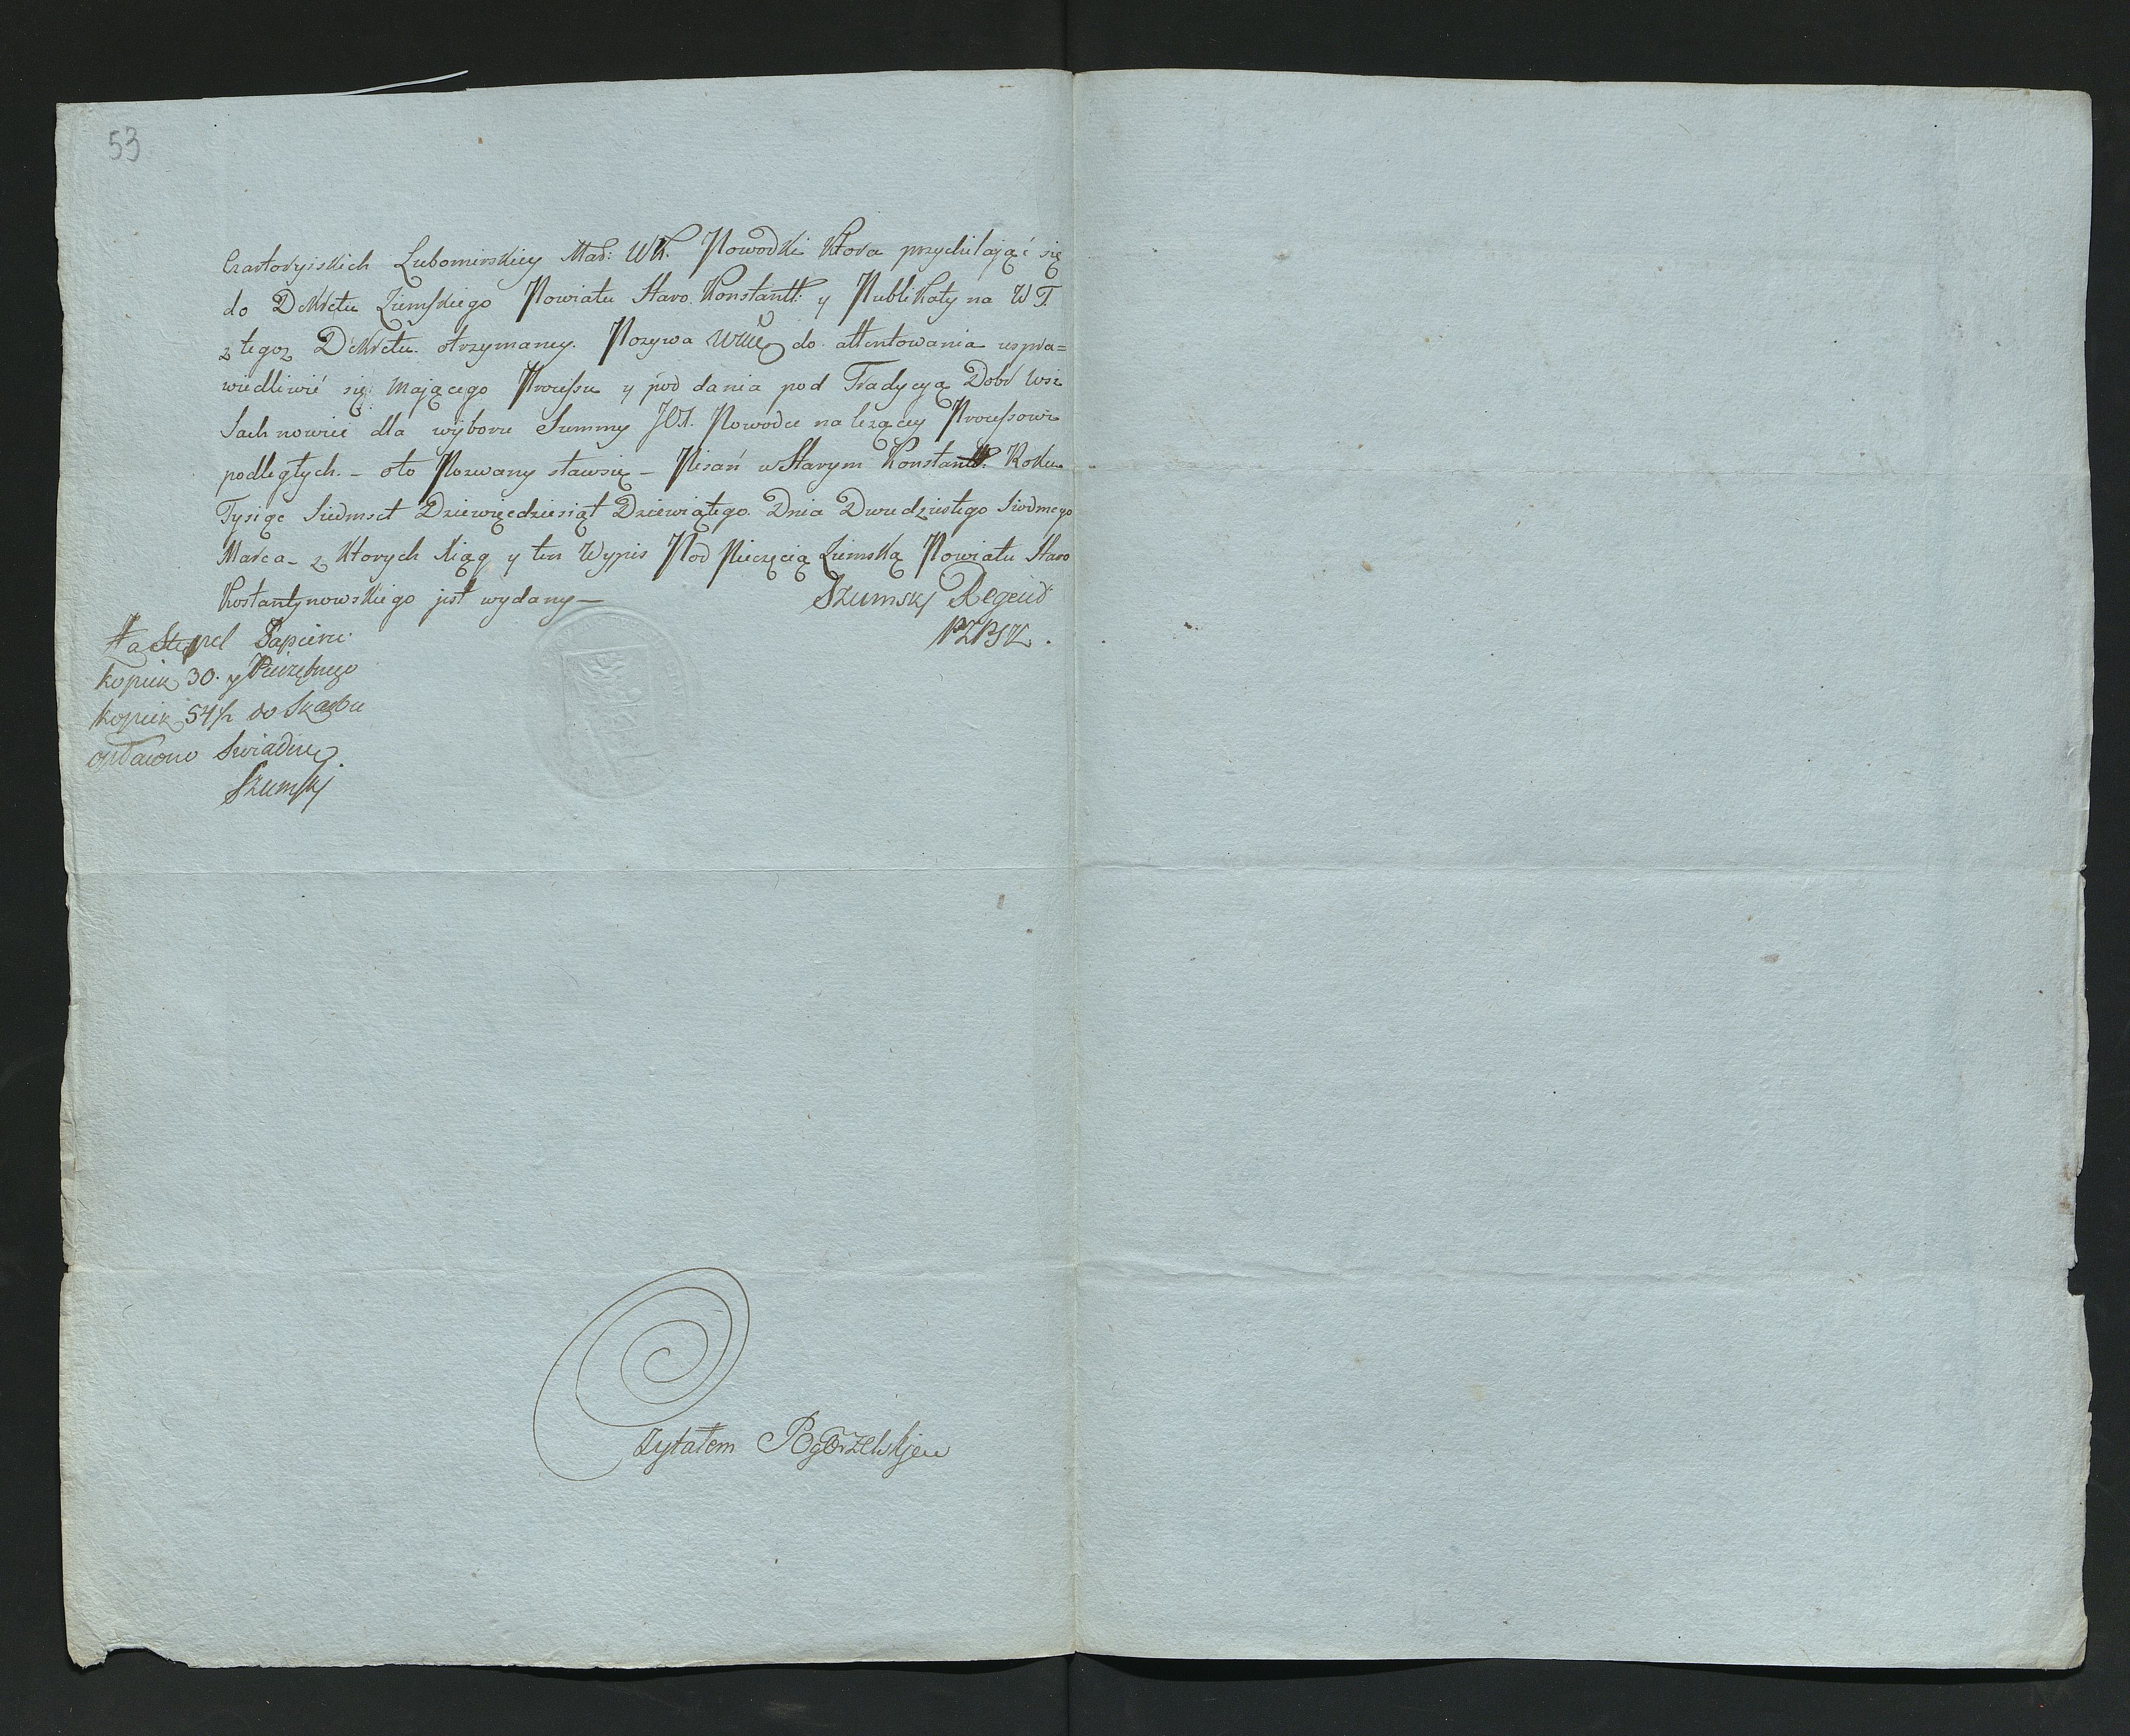 53
Czartoryiskich Lubomirskiey Mar: WK. Powodki ktora przychilaiąć się
do Dekretu Ziemskiego Powiatu Staro. Konstantt: y Publikaty na WT.
z tegoz Dekretu otrzymaney. Pozywa do attentowania uspra=
wiedliwić się mającego Processu y pod dania pod Tradycyą Dobr wsi
Sachnowiec dla wyboru Summy JO. Powodce na lezącey Processowi
podległych. – oto Pozwany stawsię – Pisań w Starym Konstantt: Roku
Tysiąc Siedmset Dziewięcdziesiąt Dziewiątego Dnia Dwudziestego Siodmego
Marca – z Ktorych Xiąg y ten Wypis Pod Pieczęcią Ziemską Powiatu Staro
Kostantynowskiego jest wydany –
Szumsky Regent
PZPSK.
Za Stępel Papieru
kopiek 30. y Pieczętnego
kopiek 54½ do Skarbu
opłacono Swiadczę.
Szumsky
Czytałem